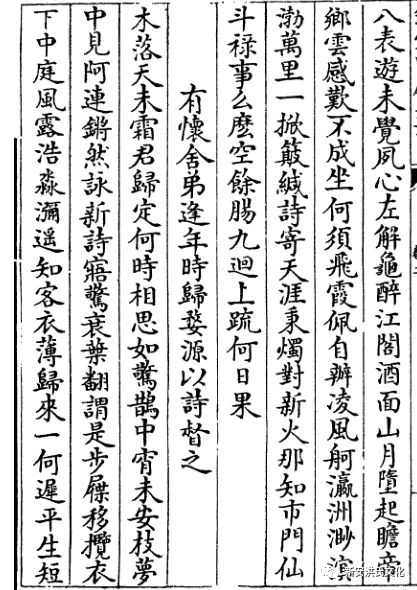 八表遊未覺夙心左解龜醉江閣酒面山月墮起瞻帝
鄉雲感歎不成坐何須飛霞佩自辦凌風舸瀛洲渺滨
渤萬里一掀簸緘詩寄天涯秉燭對新火那知市門仙
斗祿事么麽空餘腸九迴上疏何日果
有懷舍弟逢年時歸婺源以詩督之
木落天未霜君歸定何時相思如驚鵲中宵未安枝夢
中見阿連鏘然詠新詩寤驚衰葉翻謂是步屧移攬衣
下中庭風露浩淼瀰遥知客衣薄歸來一何遲平生短
新安洪黄文化